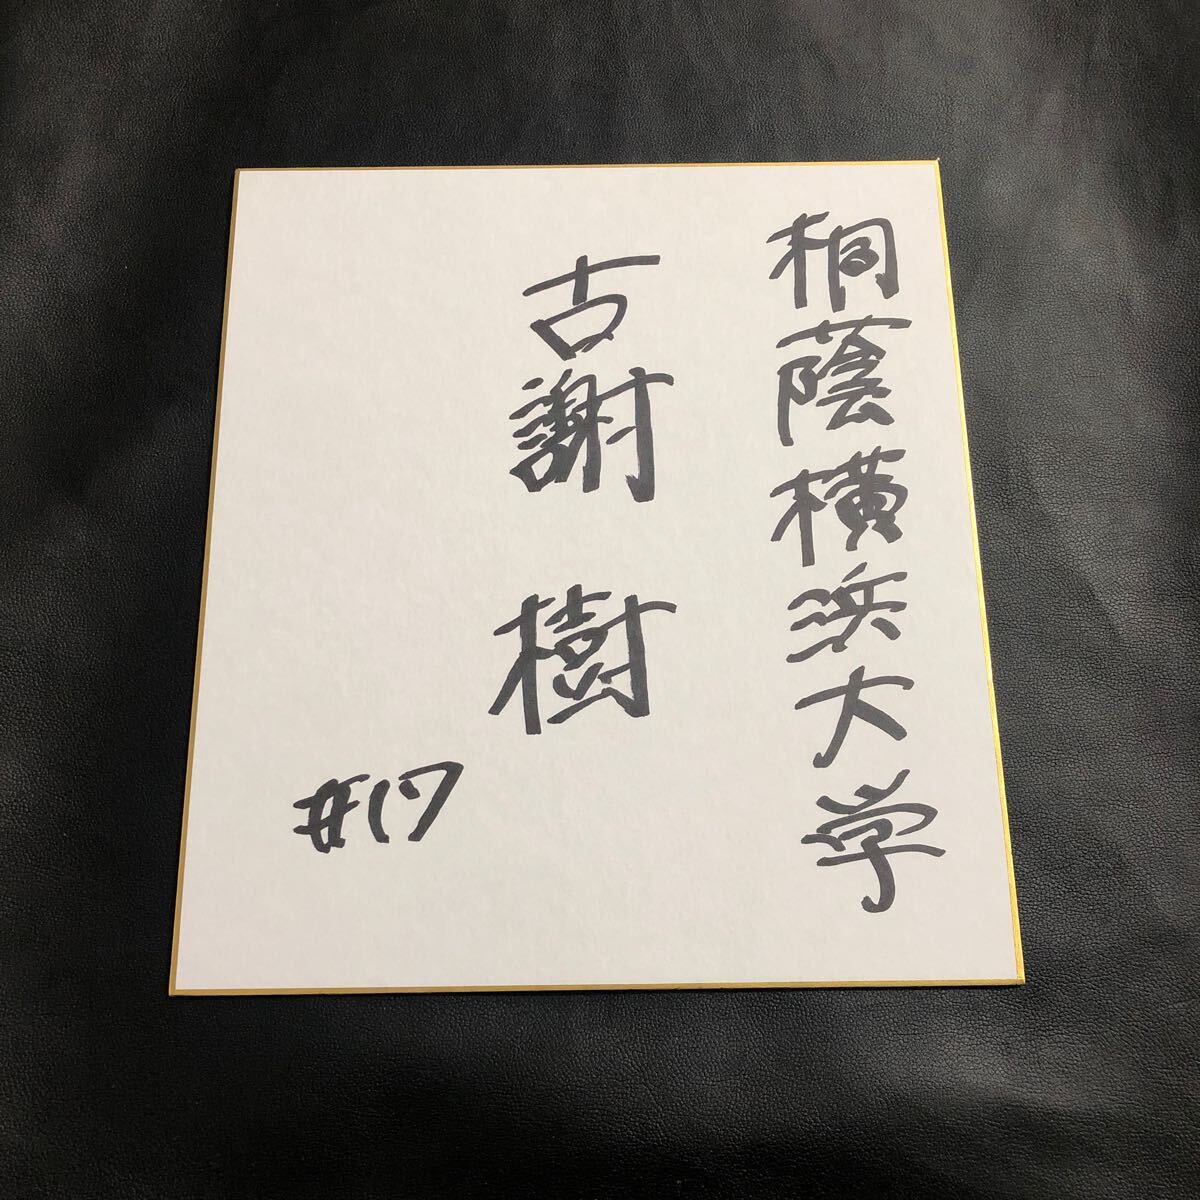 桐蔭横浜大学
古謝樹
#17